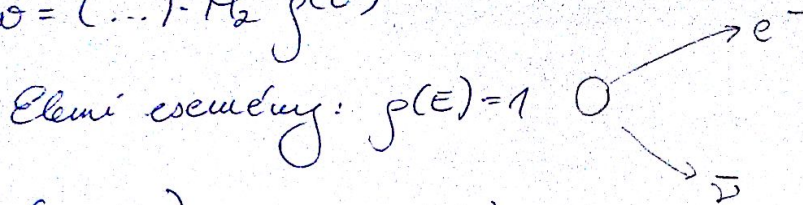 = (...) · M₂ ρ(E)
Elemi esemény: ρ(E) = 1
e⁻
ν̄